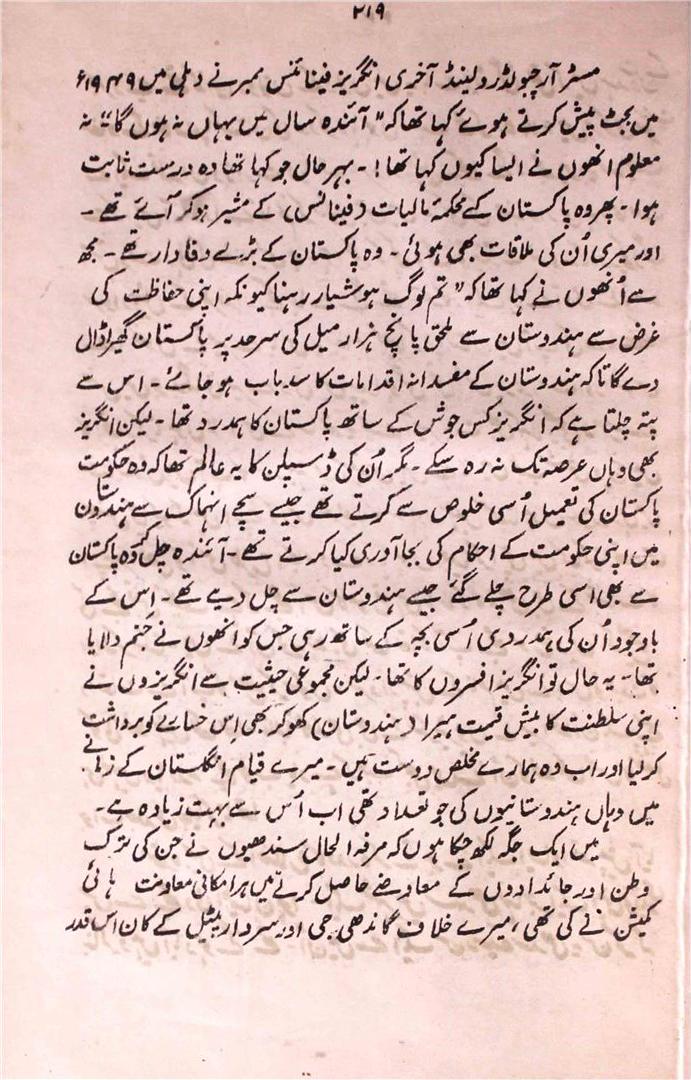 ۲۱۹
مسٹر آرچبولڈ رولینڈ آخری انگریز فینائنس ممبر نے دہلی میں ۱۹۴۹ء
میں بجٹ پیش کرتے ہوئے کہا تھا کہ "آئندہ سال میں یہاں نہ ہوں گا"۔ نہ
معلوم انھوں نے ایسا کیوں کہا تھا!۔ بہر حال جو کہا تھا وہ درست ثابت
ہوا۔ پھر وہ پاکستان کے محکمۂ مالیات (فینانس) کے مشیر ہو کر آئے تھے۔
اور میری اُن کی ملاقات بھی ہوئی۔ وہ پاکستان کے بڑے وفادار تھے۔ مجھ
سے اُنھوں نے کہا تھا کہ "تم لوگ ہوشیار رہنا کیونکہ اپنی حفاظت کی
غرض سے ہندوستان سے ملحق پانچ ہزار میل کی سرحد پر پاکستان گھیرا ڈال
دے گا تاکہ ہندوستان کے مفسدانہ اقدامات کا سدِ باب ہو جائے۔ اس سے
پتہ چلتا ہے کہ انگریز کس جوش کے ساتھ پاکستان کا ہمدرد تھا۔ لیکن انگریز
بھی وہاں عرصہ تک نہ رہ سکے۔ مگر اُن کی ڈسپلن کا یہ عالم تھا کہ وہ حکومت
پاکستان کی تعمیل اُسی خلوص سے کرتے تھے جیسے سچے انہماک سے ہندوستان
میں اپنی حکومت کے احکام کی بجا آوری کیا کرتے تھے۔ آئندہ چل کر وہ پاکستان
سے بھی اسی طرح چلے گئے جیسے ہندوستان سے چل دیے تھے۔ اِس کے
باوجود اُن کی ہمدردی اُسی بچہ کے ساتھ رہی جس کو انھوں نے جنم دلایا
تھا۔ یہ حال تو انگریز افسروں کا تھا۔ لیکن مجموعی حیثیت سے انگریزوں نے
اپنی سلطنت کا بیش قیمت ہیرا (ہندوستان) کھو کر بھی اِس خسارے کو برداشت
کر لیا اور اب وہ ہمارے مخلص دوست ہیں۔ میرے قیام انگلستان کے زمانے
میں وہاں ہندوستانیوں کی جو تعداد تھی اب اُس سے بہت زیادہ ہے۔
میں ایک جگہ لکھ چکا ہوں کہ مرفہ الحال سندھیوں نے جن کی ترک
وطن اور جائدادوں کے معاوضے حاصل کرنے میں ہر امکانی معاونت ہائی
کمیشن نے کی تھی، میرے خلاف گاندھی جی اور سردار پٹیل کے کان اس قدر